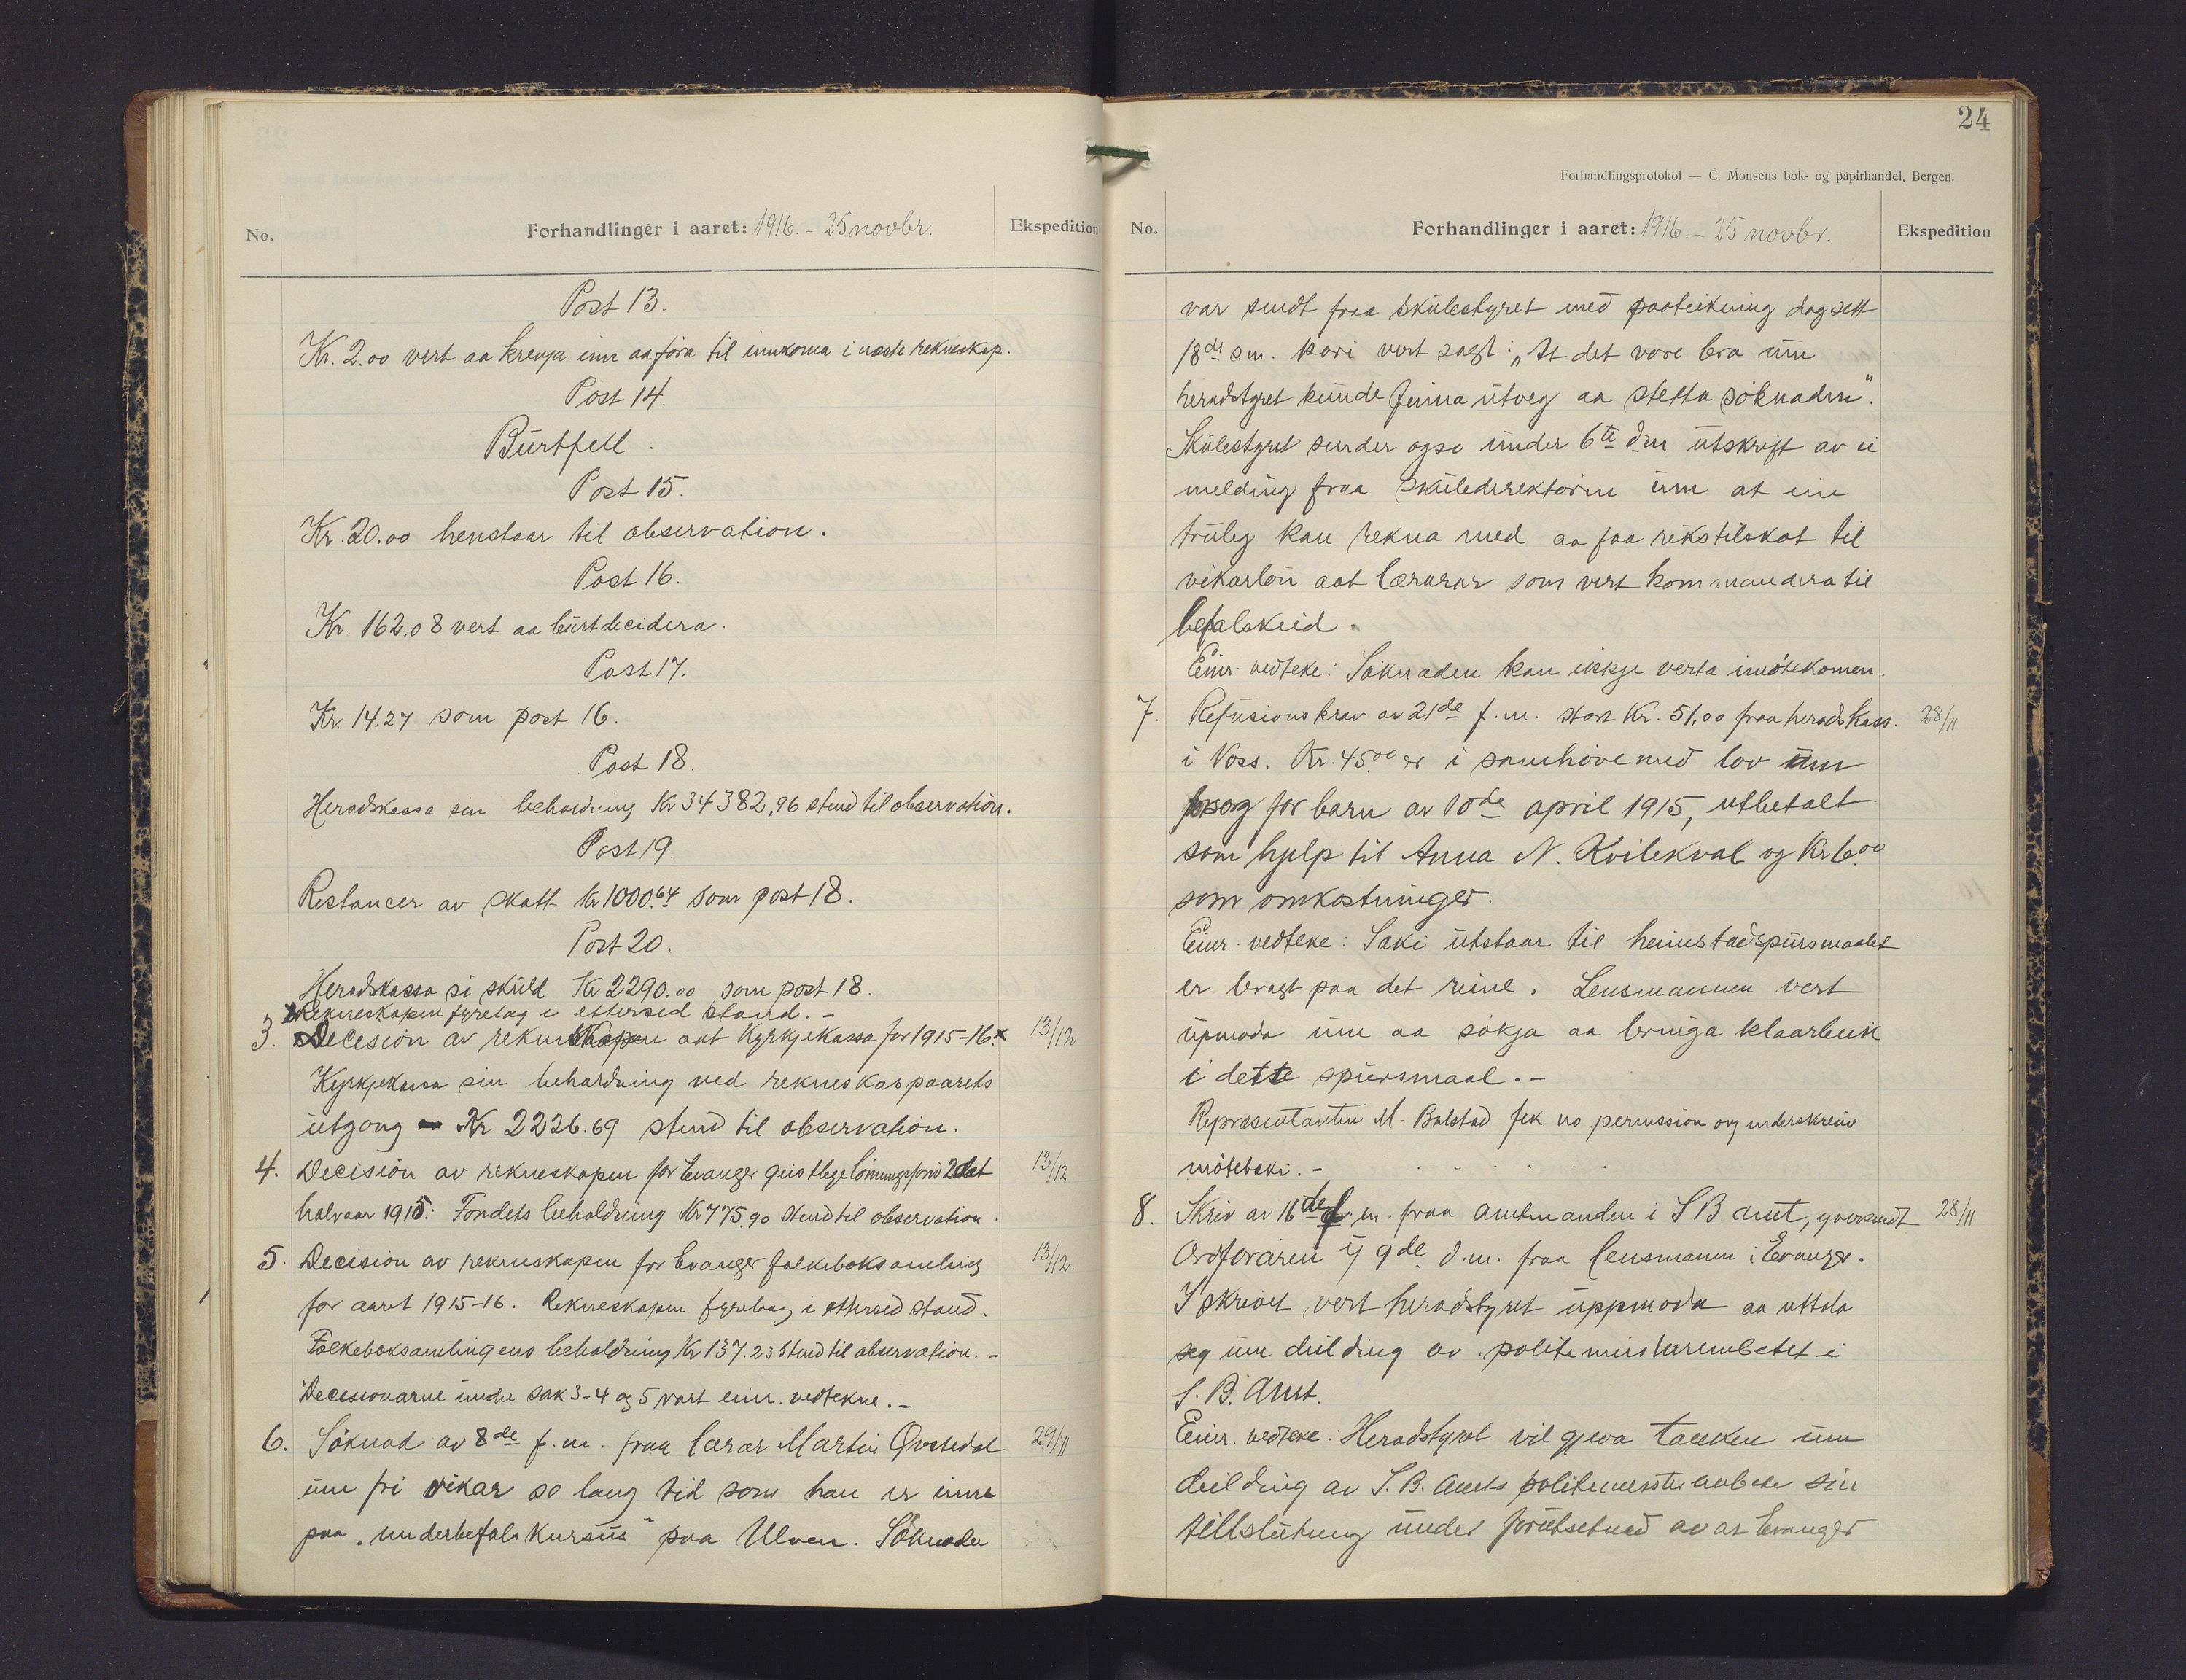 No.
Forhandlinger i aaret: 1916. - 25 novbr.
Ekspedition
Post 13.
Kr. 2.00 vert aa krevja inn aa föra til innkoma i næste rekneskap.
Post 14.
Burtfell.
Post 15.
Kr. 20.00 henstaar til observation.
Post 16.
Kr. 162.08 vert aa burtdecidera.
Post 17.
Kr. 14.27 som post 16.
Post 18.
Heradskassa sin behaldning Kr 34382,96 stend til observation.
Post 19.
Restancer av skatt Kr 1000.64 som post 18.
Post 20.
Heradskassa si skuld Kr 2290.00 som post 18.
x Rekneskapen fyrelag i ettersed stand. -
3. Decesion av rekneskapen aat Kyrkjekassa for 1915-16. x 13/12
Kyrkjekassa sin behaldning ved rekneskapsaarets
utgang Kr 2226.69 stend til observation.
4. Decision av rekneskapen for Evanger geistlege lönningsfond 2det 13/12
halvaar 1915: Fondets beholdning Kr 775.90 stend til observation.
5. Decision av rekneskapen for Evanger folkeboksamling 13/12.
for aaret 1915-16. Rekneskapen fyrelag i ettersed stand.
Folkeboksamlingens beholdning Kr 137.23 stend til observation. -
Decisionarne under sak 3-4 og 5 vart einr. vedtekne. -
6. Söknad av 8de f.m. fraa lærar Martin Qvstedal 29/11
um fri vikar so lang tid som han er inne
paa "underbefalskursus" paa Ulven. Söknaden
24
Forhandlingsprotokol — C. Monsens bok- og papirhandel, Bergen.
No.
Forhandlinger i aaret: 1916. - 25 novbr.
Ekspedition
var sendt fraa skulestyret med paateikning dagsett
18de s.m. kori vert sagt: "At det vore bra um
heradstyret kunde finna utveg aa stetta söknaden".
Skulestyret sender ogso under 6te d.m utskrift av ei
melding fraa skuledirektören um at ein
truleg kan rekna med aa faa rikstilskot til
vikarlön aat lærarar som vert kommandera til
befalskeid.
Einr. vedteke: Söknaden kan ikkje verta imötekomen.
7. Refusionskrav av 21de f.m. stort Kr. 51,00 fraa heradskass. 28/11
i Voss. Kr. 45.00 er i samhöve med lov um
forsorg for barn av 10de april 1915, utbetalt
som hjelp til Anna N. Kvilekval og Kr 6.00
som omkostninger.
Einr. vedteke: Saki utstaar til heimstadspursmaalet
er bragt paa det reine. Lensmannen vert
upmoda um aa sökja aa bringa klaarleik
i dette spursmaal. -
Representanten M. Bolstad fek no permission og underskreiv
möteboki. -
8. Skriv av 16de f.m. fraa amtmanden i S B. amt, yversendt 28/11
Ordföraren 9de d.m. fraa lensmann i Evanger.
I skrivet vert heradstyret uppmoda aa uttala
seg um deilding av politemeisterembetet i
S. B. Amt.
Einr. vedteke: Heradstyret vil gjeva tanken um
deilding av S. B. Amts politemeisterembete sin
tillslutning under forutsetned av at Evanger